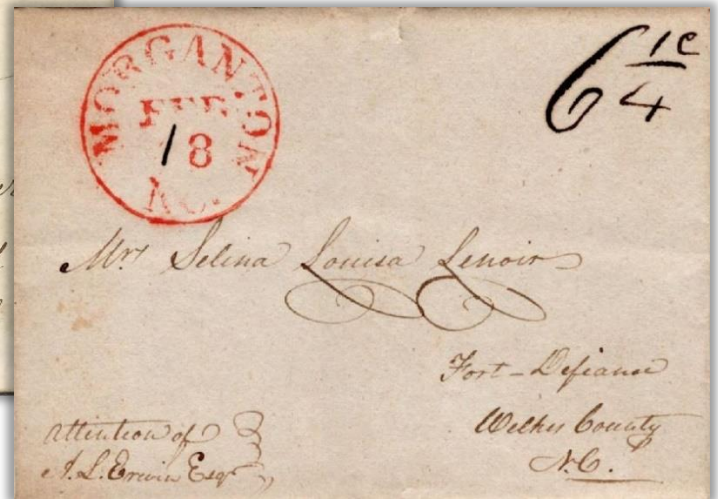 MORGANTON
FEB
18
N.C.
6 1c/4
Mrs Selina Louisa Lenoir
Fort-Defiance
Wilkes County
N.C.
Attention of
A. L. Erwin Esqr